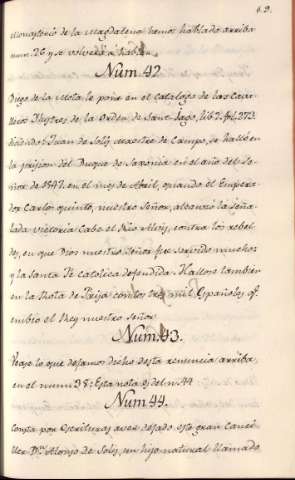 49.
Monasterio de la Magdalena hemos hablado arriba
num. 26 y se volverá a hablar.
Num. 42
Diego de la Mota le pone en el Catalogo de los Cava-
lleros Ilustres de la Orden de Sant-Iago, lib. 2. fol. 273.
diciendo: Juan de Solis, maestre de Campo, se halló en
la prision del Duque de Saxonia en el año del Se-
ñor de 1547. en el mes de Abril, quando el Empera-
dor Carlos quinto, nuestro Señor, alcanzó la seña-
lada victoria Cabe el Rio Albis, contra los rebel-
des, en que Dios nuestro Señor fue servido mucho,
y la Santa Fe catolica defendida. Hallose tambien
en la Rota de Frija con los tres mil Españoles qe.
embio el Rey nuestro Señor
Num. 43.
Vease lo que dejamos dicho desta renuncia arriba,
en el num. 35: Esta nota es del n. 44
Num. 44.
Consta por Escrituras aver dejado este gran Canci-
ller Dn. Alonso de Solis, un hijo natural llamado